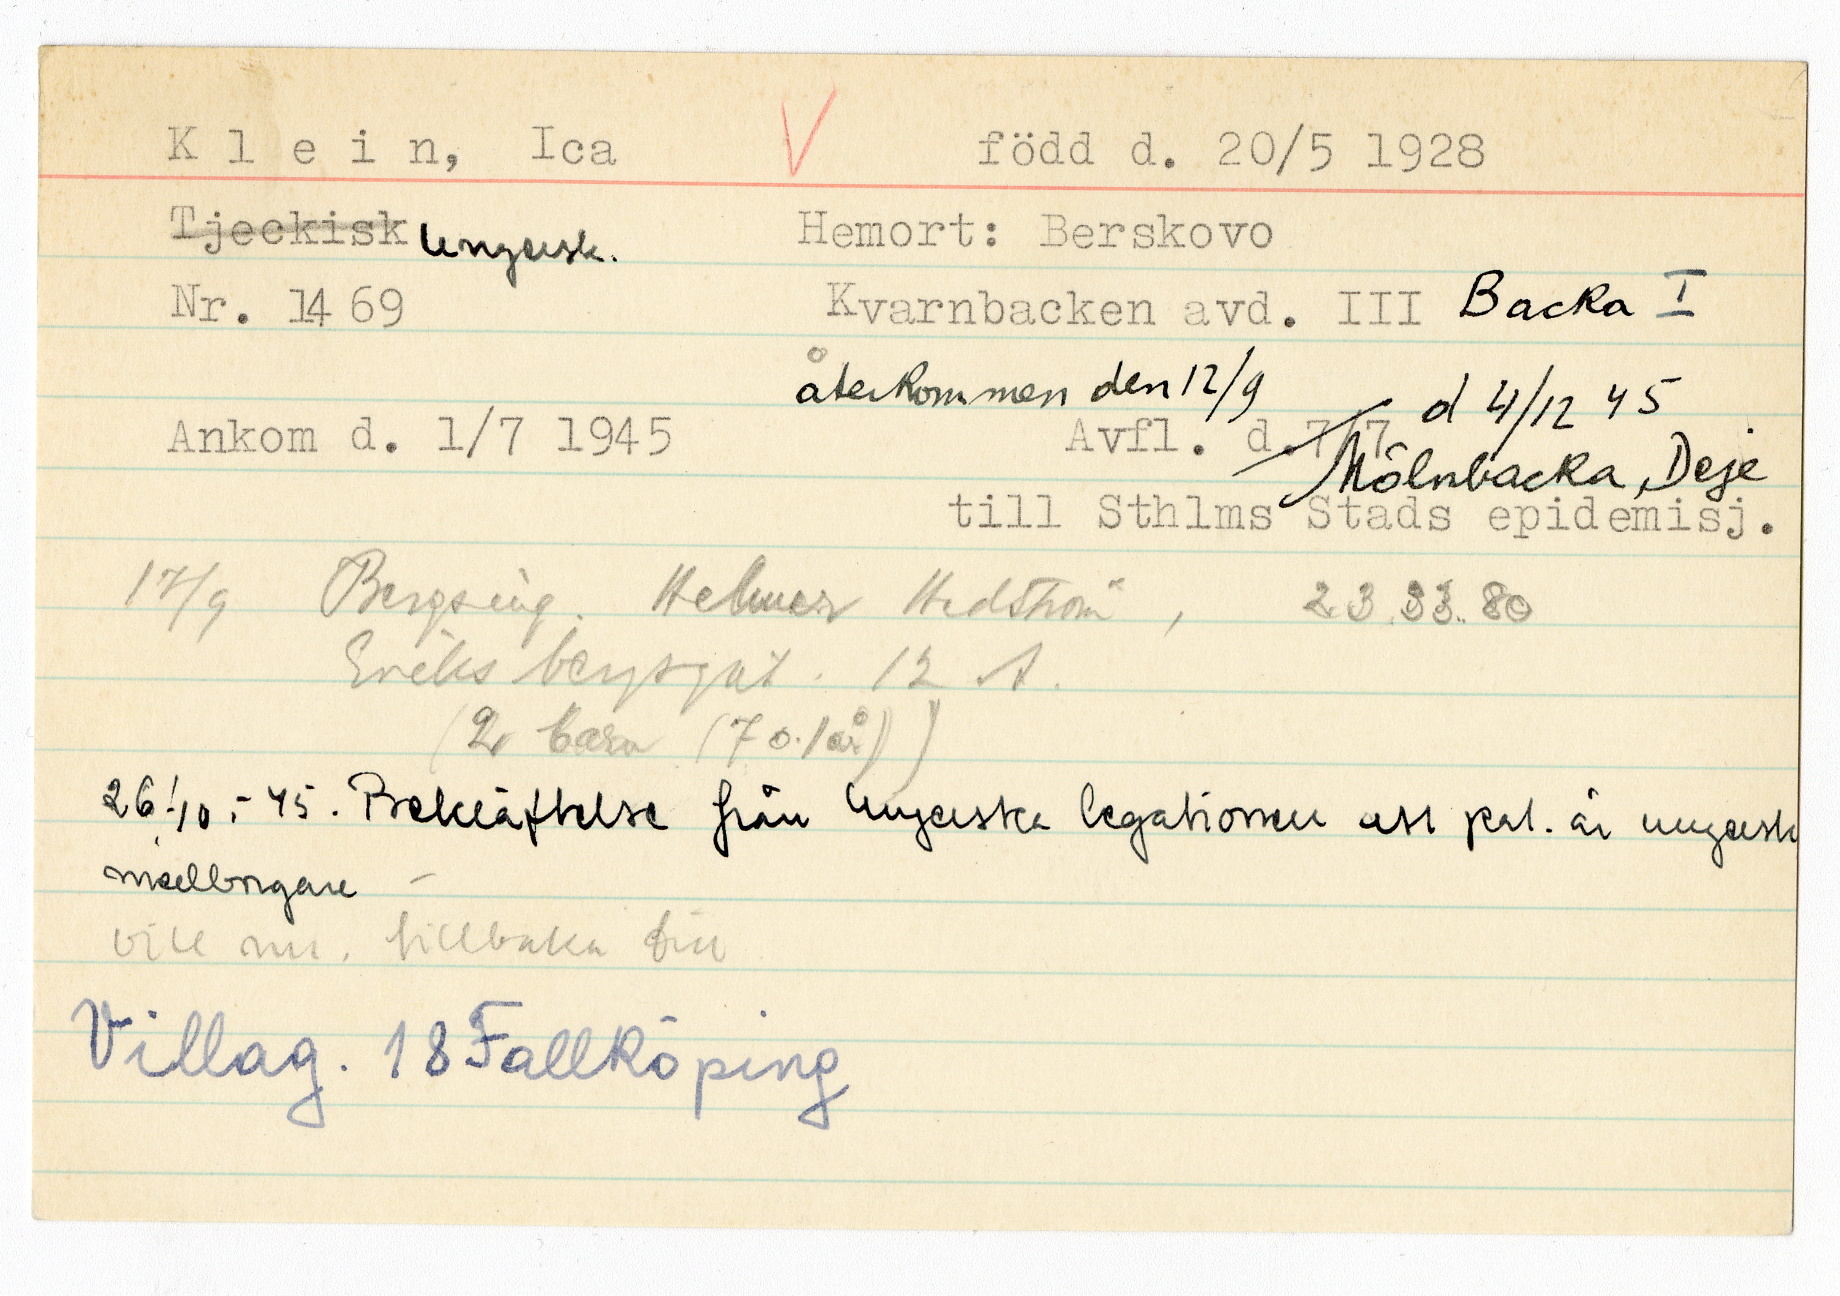 K l e i n, Ica V född d. 20/5 1928
Tjeckisk Ungersk. Hemort: Berskovo
Nr. 1469 Kvarnbacken avd. III Backa I
återkommen den 12/9 d 4/12 45
Ankom d. 1/7 1945 Avfl. d.7/7 Mölnbacka, Deje
till Sthlms Stads epidemisj.
17/9 Bergsing. Helmer Hedström, 23.33.80
Eriksbergsgat. 12 A.
(2 barn (7 o. 1 år))
26/10.-45. Bekräftelse från Ungerska legationen att pat. är ungersk
medborgare –
vill nu. tillbaka till
Villag. 18 Fallköping